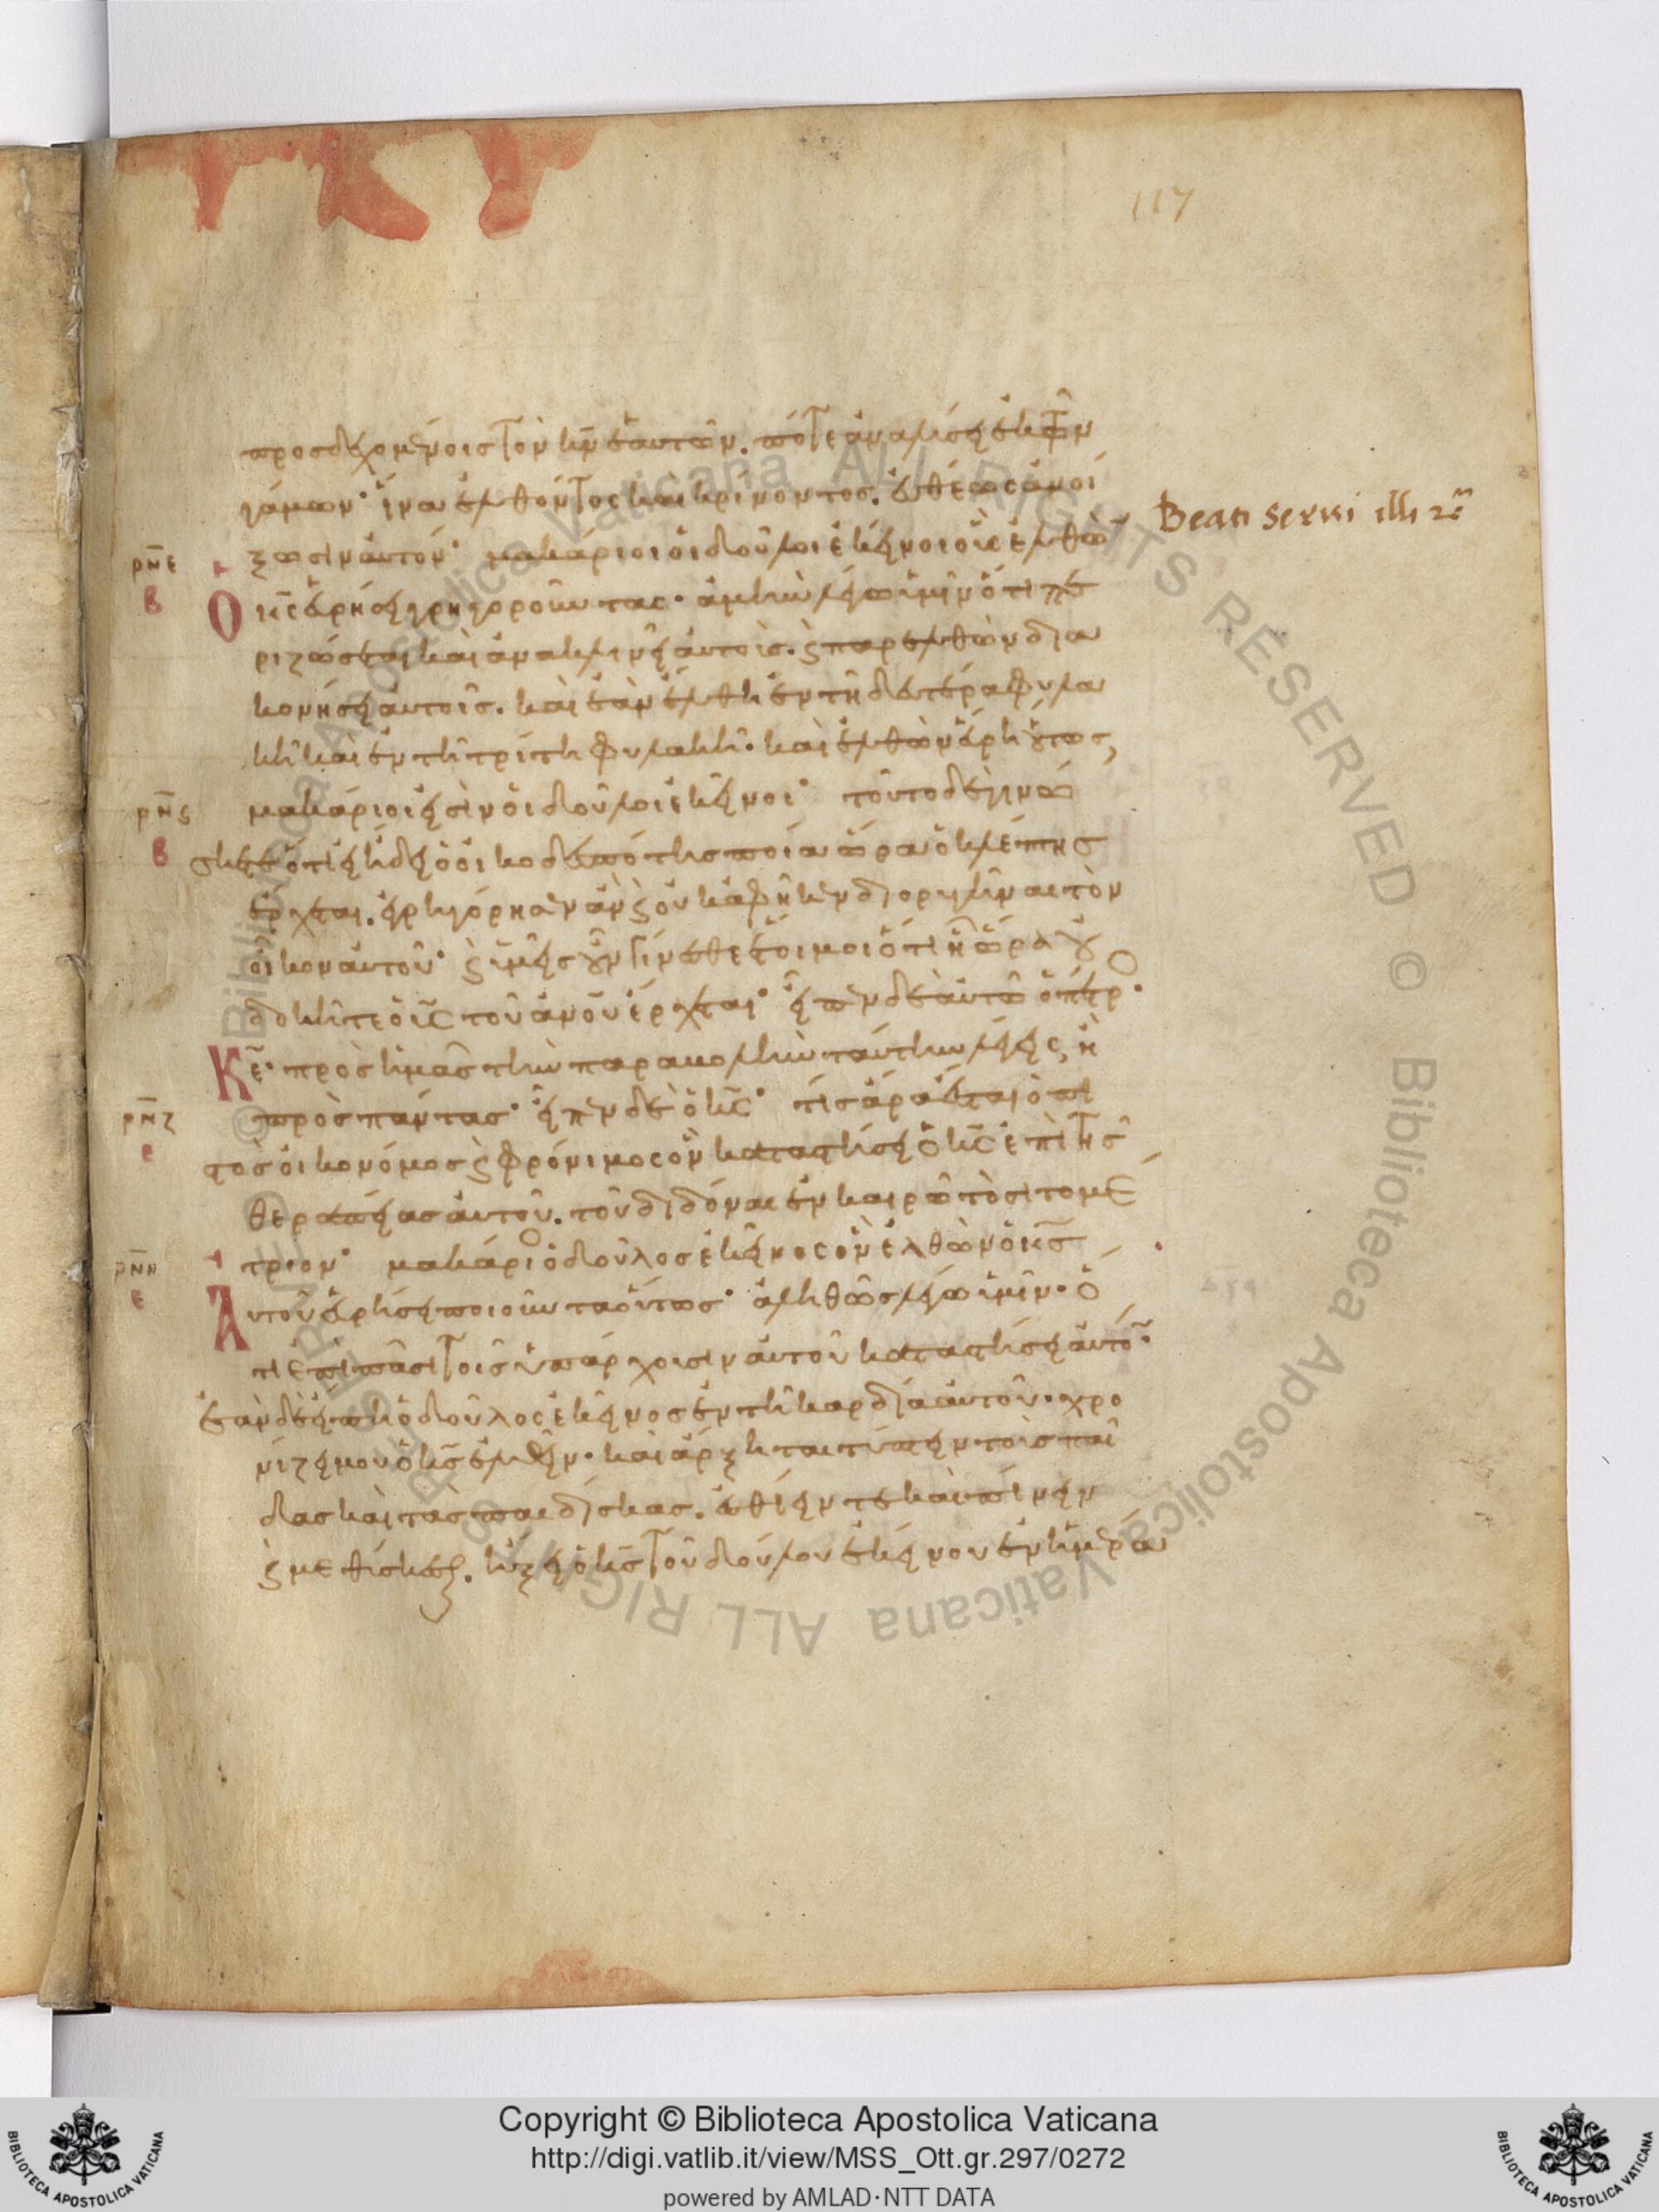 117
προσδεχομένοις τὸν κν̄ ἑαυτῶν. πότε ἀναλύσει ἐκ τῶν
γάμων· ἵνα ἐλθόντος καὶ κρούσαντος. εὐθέως ἀνοί
Beati serui illi
ξωσιν αὐτου· μακάριοι οἱ δοῦλοι ἐκεῖνοι οὓς ἐλθὼ
ρν̄ε
β
ὁ κς̄ εὑρήσει γρηγοροῦντας· ἀμὴν λέγω ὑμῖν ὅτι πε
ριζώσεται καὶ ἀνακλινεῖ αὐτοὺς. ϗ παρελθὼν δια
κονήσει αὐτοῖς. καὶ ἐὰν ἔλθη ἐν τῆ δευτέρα φυλα
κῆ καὶ ἐν τῆ τρίτη φυλακῆ· καὶ ἐλθὼν εὕρη οὕτως,
ρν̄ς
μακάριοι εἰσὶν οἱ δοῦλοι ἐκεῖνοι· τοῦτο δὲ γινώ
β
σκετε ὅτι εἰ ἤδει ὁ οἰκοδεσπότης ποία ὥρα ὁ κλέπτης
ἔρχεται. ἐγρηγόρησεν ἂν ϗ οὐκ ἀφῆκεν διορυγῆναι τὸν
οἶκον αὐτοῦ· ϗ ὑμεῖς οὖν γίνεσθε ἕτοιμοι ὅτι ἧ ὥρα οὐ
δοκῆτε ὁ υς̄ τοῦ ἀνου ἔρχεται· εἶπεν δὲ αὐτῶ ὁ πέτρο·
Κε̄· πρὸς ἡμᾶς τὴν παραβολὴν ταύτην λέγεις, ἢ
ρν̄ζ
πρὸς πάντας· εἶπεν δὲ ὁ κς̄· τίς ἄρα ἐστὶν ὁ πι
ε
στὸς οἰκονόμος ϗ φρόνιμος ὃν καταστήσει ὁ κς̄ ἐπὶ τῆς
θεραπείας αὐτοῦ. τοῦ διδόναι ἐν καιρῶ τὸ σιτομέ
ρν̄η
τριον· μακάριο ὁ δοῦλος ἐκεῖνος ὃν ἐλθὼν ὁ κς̄
ε
Αὐτοῦ εὑρήσει ποιοῦντα οὕτως· ἀληθῶς λέγω ὑμῖν· ὅ
τι ἐπὶ πᾶσι τοῖς ὑπάρχουσιν αὐτοῦ καταστήσει αὐτό·
ἐὰν δὲ εἴπη ὁ δοῦλος ἐκεῖνος ἐν τῆ καρδία αὐτοῦ· χρο
νίζει μου ὁ κς̄ ἐλθεῖν· καὶ ἄρξηται τύπτειν τοὺς παῖ
δας καὶ τὰς παιδίσκας. ἐσθίειν τε καὶ πίνειν
ϗ μεθύσκεσθαι. ἥξει ὁ κς̄ τοῦ δούλου ἐκείνου ἐν ἡμέρα
Copyright © Biblioteca Apostolica Vaticana
http://digi.vatlib.it/view/MSS_Ott.gr.297/0272
powered by AMLAD·NTT DATA
BIBLIOTECA APOSTOLICA VATICANA
BIBLIOTECA APOSTOLICA VATICANA
© Biblioteca Apostolica Vaticana ALL RIGHTS RESERVED © Biblioteca Apostolica Vaticana ALL RIGHTS RESERVED